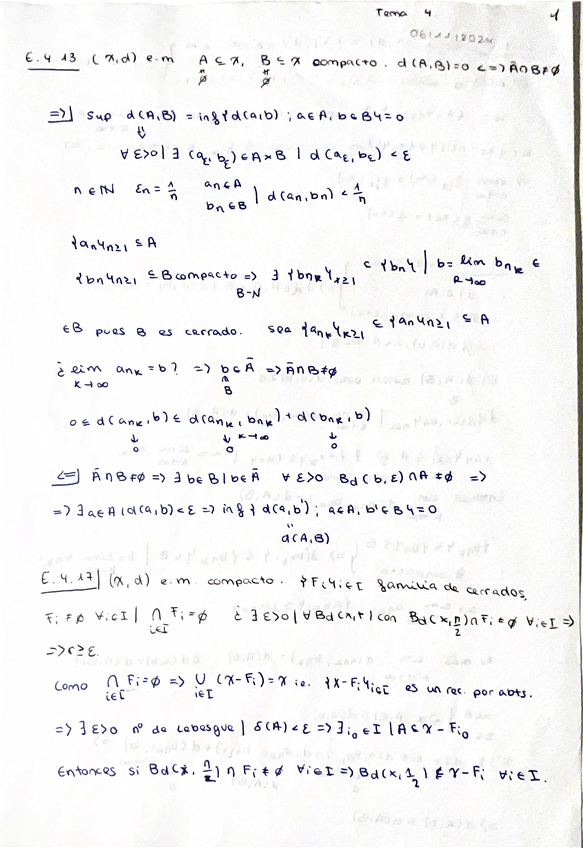 Tema 4. 1
06/11/2024
E.4.13 (X,d) e.m A ⊆ X, B ⊆ X compacto. d(A,B)=0 <=> Ā∩B≠∅
≠ ≠
∅ ∅
=>| Sup d(A,B) = inf{d(a,b); a∈A, b∈B}=0
⇓
∀ ε>0 | ∃ (aε, bε)∈A×B | d(aε, bε) < ε
n∈ℕ εn = 1/n an∈A bn∈B | d(an,bn) < 1/n
{an}n≥1 ⊆ A
{bn}n≥1 ⊆ B compacto => ∃ {bnk}k≥1 ⊂ {bn} | b = lim bnk ∈
B-N k→∞
∈B pues B es cerrado. sea {ank}k≥1 ⊆ {an}n≥1 ⊆ A
¿ lim ank = b? => b∈Ā => Ā∩B≠∅
k→∞ B
0 ≤ d(ank, b) ≤ d(ank, bnk) + d(bnk, b)
↓ ↓ k→∞ ↓
0 0 0
<=| Ā∩B≠∅ => ∃ b∈B | b∈Ā ∀ ε>0 Bd(b,ε)∩A ≠∅ =>
=> ∃ a∈A | d(a,b)<ε => inf{d(a,b'); a∈A, b'∈B}=0
"
d(A,B)
E.4.17| (X,d) e.m. compacto. {Fi}i∈I familia de cerrados,
Fi ≠∅ ∀i∈I | ∩i∈I Fi = ∅ ¿ ∃ ε>0 | ∀ Bd(x,r) con Bd(x, r/2)∩Fi ≠∅ ∀i∈I =>
=> r≥ε.
Como ∩i∈I Fi=∅ => ∪i∈I (X-Fi)=X ie. {X-Fi}i∈I es un rec. por abts.
=> ∃ ε>0 nº de Lebesgue | δ(A)<ε => ∃ i0∈I | A⊂X-Fi0
Entonces si Bd(x, r/2) ∩ Fi ≠∅ ∀i∈I => Bd(x, r/2) ⊄ X-Fi ∀i∈I.